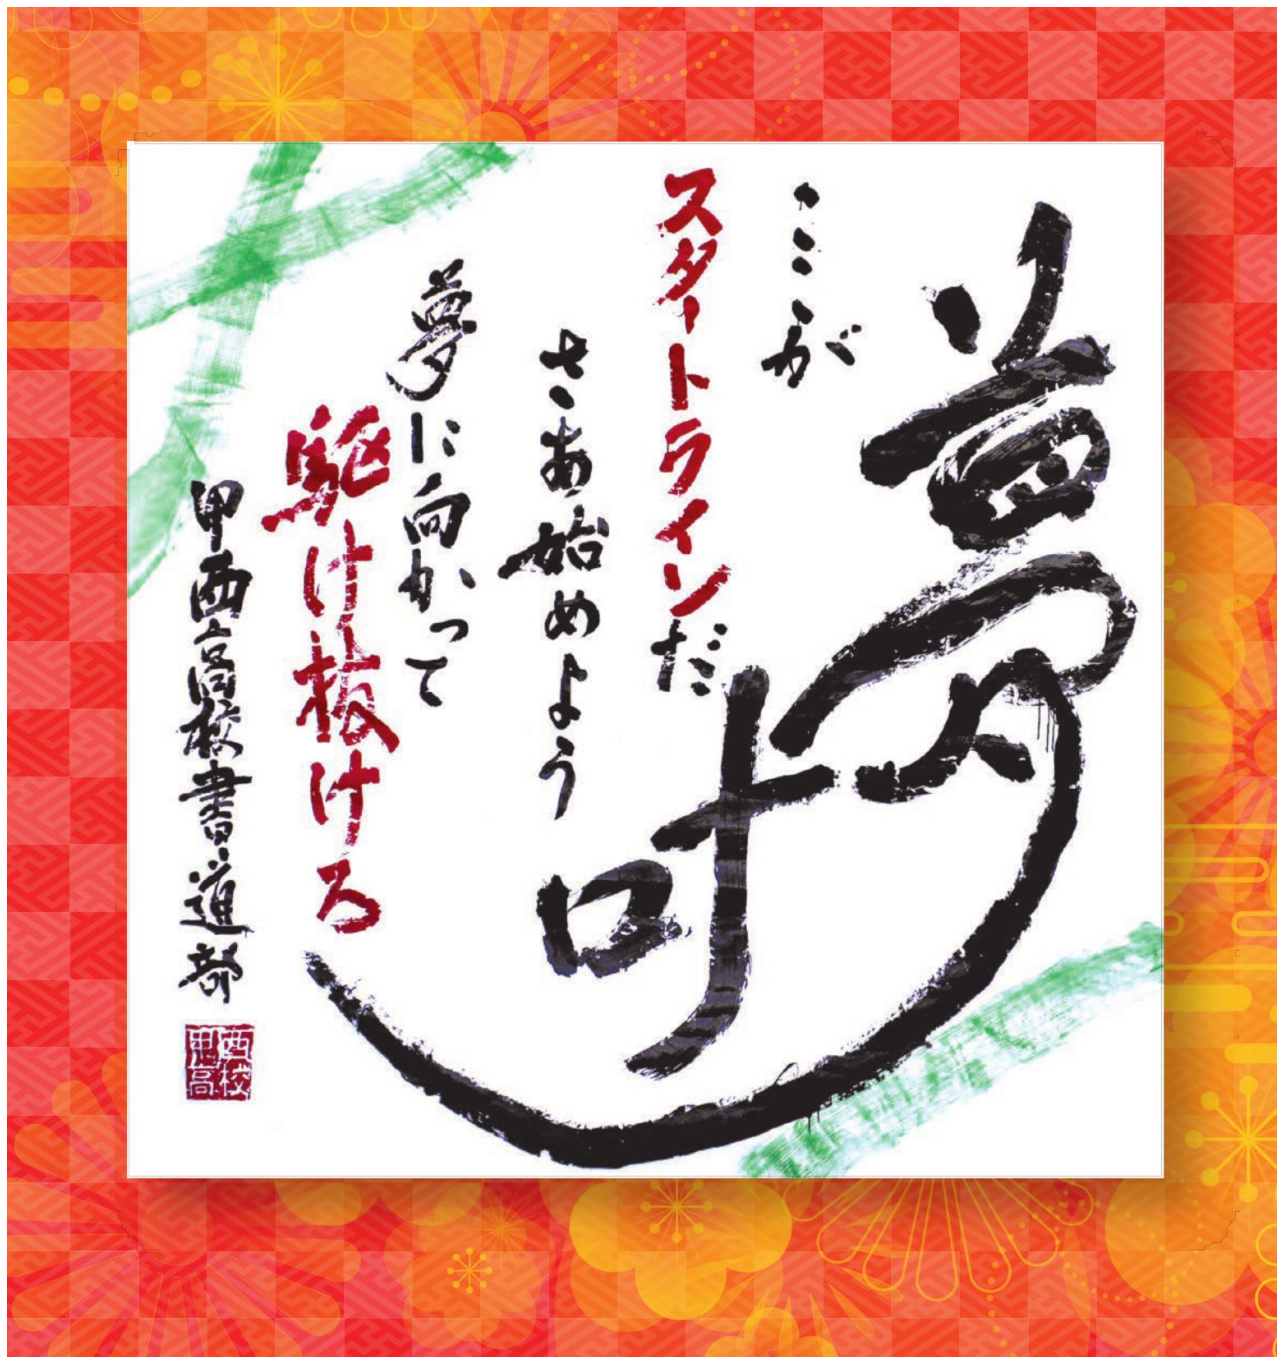 夢叶
ここが
スタートラインだ
さあ始めよう
夢に向かって
駆け抜けろ
甲西高校書道部
甲西
高校